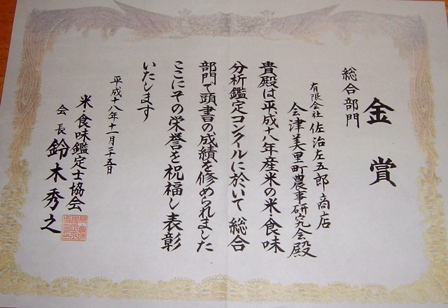 金賞
総合部門
有限会社 佐治左五郎商店
会津美里町農事研究会殿
貴殿は平成十八年産米の米・食味
分析鑑定コンクールに於いて 総合
部門で頭書の成績を修められました
ここにその栄誉を祝福し表彰
いたします
平成十八年十一月二十五日
米・食味鑑定士協会
会長 鈴木秀之